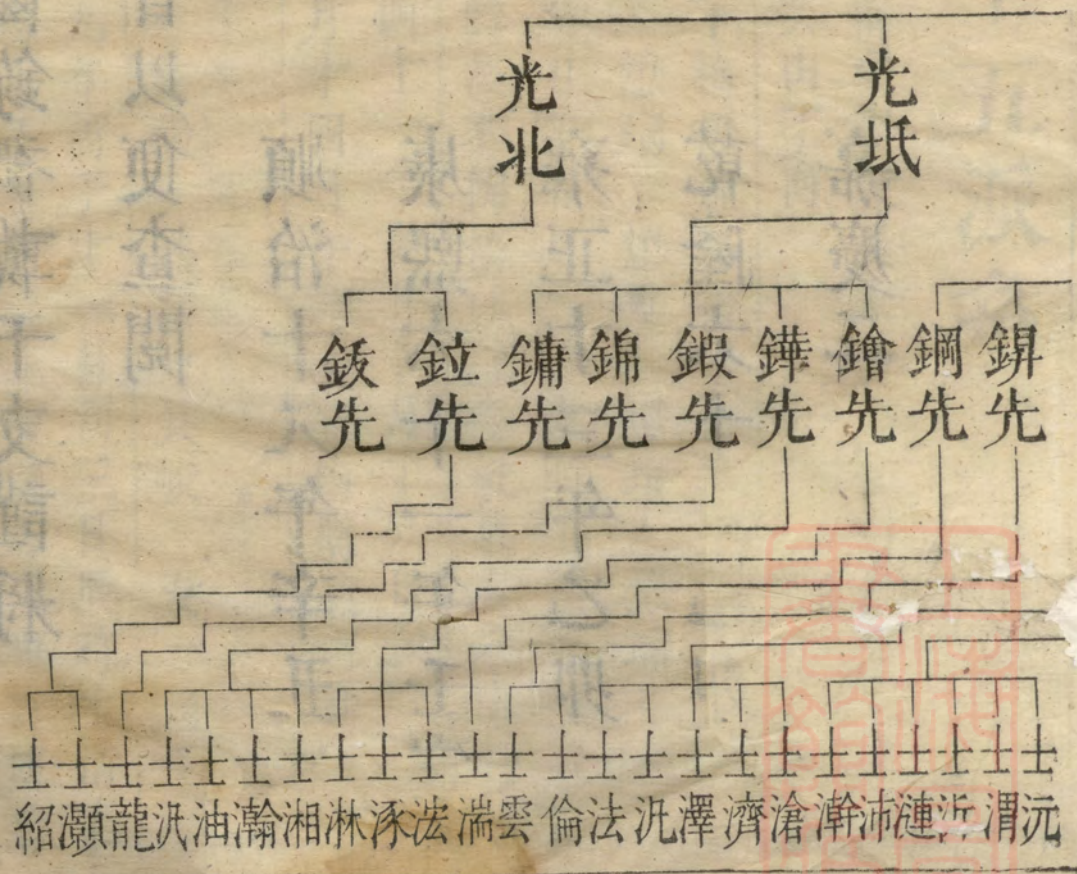 光坻
光北
鎅先
鋼先
鐕先
鏵先
鍜先
錦先
鏞先
鉝先
鈸先
士沅
士渭
士近
士漣
士沛
士澣
士滄
士濟
士澤
士汎
士法
士倫
士雲
士湍
士浤
士涿
士淋
士湘
士瀚
士油
士汎
士龍
士灝
士紹